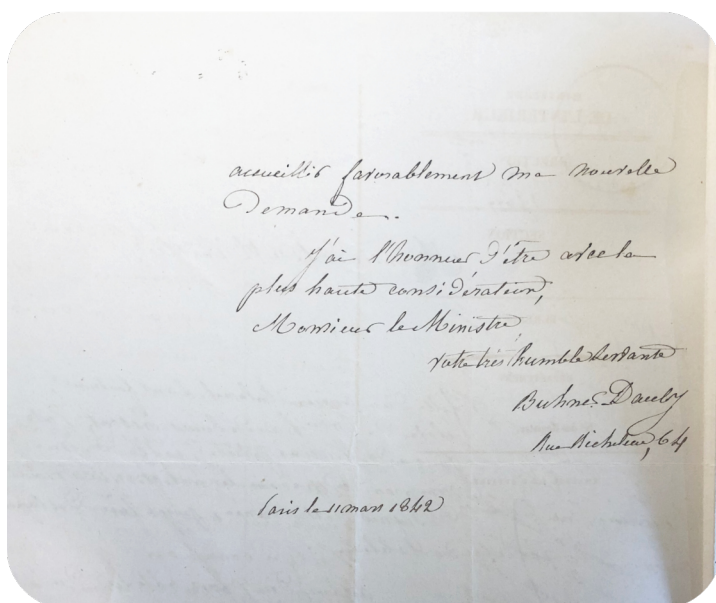 accueillir favorablement ma nouvelle
Demande.
J'ai l'honneur d'être avec la
plus haute considération,
Monsieur le Ministre,
votre très humble servante
Buhner Dauby
Rue Richelieu, 64
Paris le 11 mars 1842